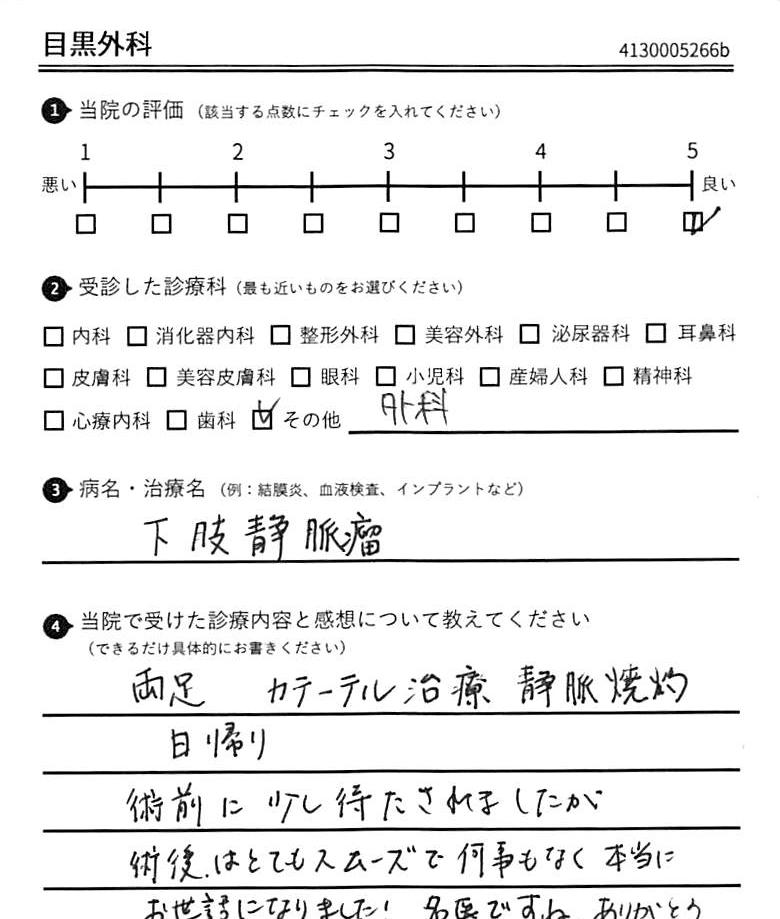 目黒外科
4130005266b
1 当院の評価 (該当する点数にチェックを入れてください)
1 2 3 4 5
悪い 良い
2 受診した診療科 (最も近いものをお選びください)
内科 消化器内科 整形外科 美容外科 泌尿器科 耳鼻科
皮膚科 美容皮膚科 眼科 小児科 産婦人科 精神科
心療内科 歯科 その他 外科
3 病名・治療名 (例：結膜炎、血液検査、インプラントなど)
下肢静脈瘤
4 当院で受けた診療内容と感想について教えてください
(できるだけ具体的にお書きください)
両足 カテーテル治療 静脈焼灼
日帰り
術前に少し待たされましたが
術後はとてもスムーズで何事もなく本当に
お世話になりました! 名医ですね。ありがとう